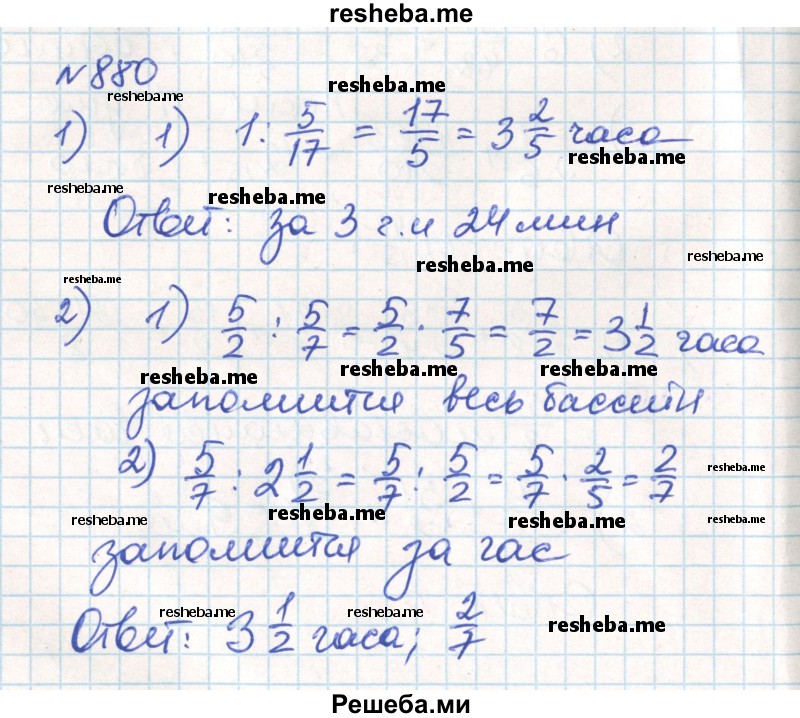 resheba.me
№880
resheba.me resheba.me
1) 1) 1 : 5/17 = 17/5 = 3 2/5 часа
resheba.me
resheba.me resheba.me
Ответ: за 3 ч. и 24 мин
resheba.me resheba.me
resheba.me
2) 1) 5/2 : 5/7 = 5/2 · 7/5 = 7/2 = 3 1/2 часа
resheba.me resheba.me resheba.me
заполнится весь бассейн
2) 5/7 : 2 1/2 = 5/7 : 5/2 = 5/7 · 2/5 = 2/7
resheba.me
resheba.me resheba.me resheba.me resheba.me
заполнится за час
resheba.me resheba.me resheba.me
Ответ: 3 1/2 часа; 2/7
Решеба.ми